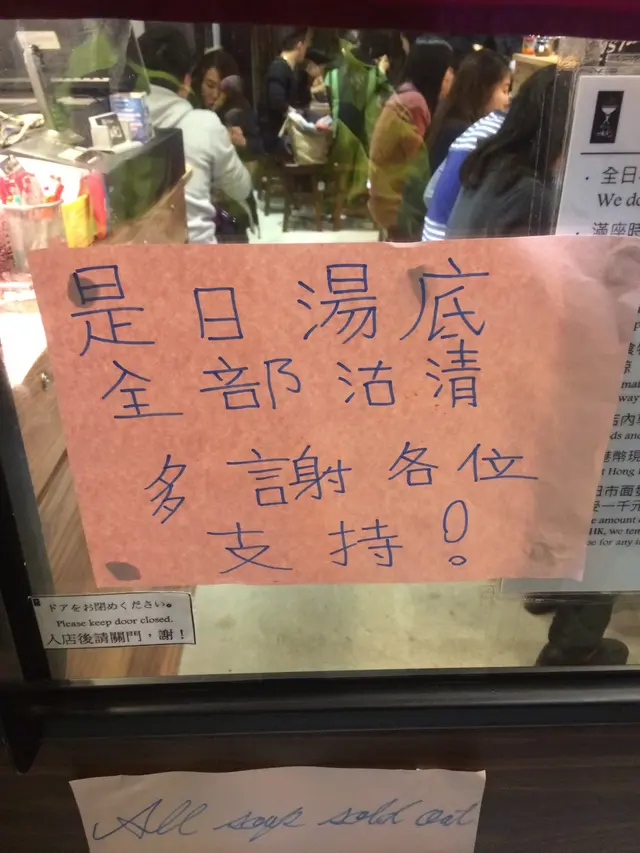 是日湯底
全部沽清
多謝各位
支持！
ドアをお閉めください。
Please keep door closed.
入店後請關門，謝！
All soup sold out
・全日
We do
・滿座時
way
ds and
港幣現
t Hong
日市面
受一千元
e amount
HK, we
e for any